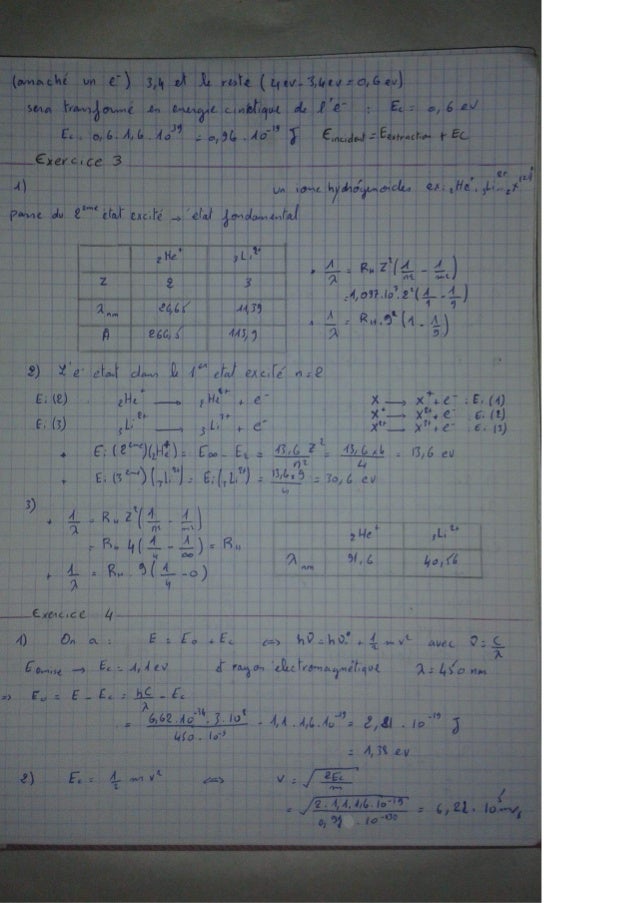 (arraché un e⁻) 3,4 et le reste (4ev - 3,4ev = 0,6 ev)
sera transformé en energie cinétique de l'e⁻ : Ec = 0,6 ev
Ec = 0,6 · 1,6 · 10⁻¹⁹ = 0,96 · 10⁻¹⁹ J Eincident = Eextraction + EC
Exercice 3
1) un ione hydrogénoides ex: ₂He⁺, ₃Li²⁺
passe du 2ème état excité → état fondamental
₂He⁺ ₃Li²⁺
Z 2 3
λ nm 26,65 11,39
Å 266,5 113,9
• 1/λ = R_H Z² (1/n² - 1/m²)
= 1,097·10⁷·2² (1/1 - 1/9)
• 1/λ = R_H · 9 (1 - 1/9)
2) L'e⁻ etait dans le 1er etat excité n=2
Ei (2) ₂He⁺ → ₂He²⁺ + e⁻ X → X⁺ + e⁻ : Ei (1)
Ei (3) ₃Li²⁺ → ₃Li³⁺ + e⁻ X⁺ → X²⁺ + e⁻ : Ei (2)
X²⁺ → X³⁺ + e⁻ : Ei (3)
+ Ei (2ème)(₂He⁺) = E∞ - E₂ = 13,6 Z²/n² = 13,6 x 4/4 = 13,6 ev
+ Ei (3ème)(₃Li²⁺) = Ei (₃Li²⁺) = 13,6 x 9/4 = 30,6 ev
3)
+ 1/λ = R_H Z² (1/n² - 1/m²)
= R_H 4 (1/4 - 1/∞) = R_H
+ 1/λ = R_H · 9 (1/4 - 0)
₂He⁺ ₃Li²⁺
λ nm 91,6 40,56
Exercice 4
1) On a : E = E₀ + Ec ⇔ hν = hν₀ + 1/2 m v² avec ν = c/λ
Eomise → Ec = 1,1 ev rayon électromagnétique λ = 450 nm
⇒ E₀ = E - Ec = hC/λ - Ec
= 6,62·10⁻³⁴ · 3·10⁸ / 450·10⁻⁹ - 1,1 · 1,6·10⁻¹⁹ = 2,21 · 10⁻¹⁹ J
= 1,38 ev
2) Ec = 1/2 m v² ⇔ v = √(2Ec/m)
= √(2·1,1·1,6·10⁻¹⁹ / 0,91 · 10⁻³⁰) = 6,22 · 10⁵ m/s